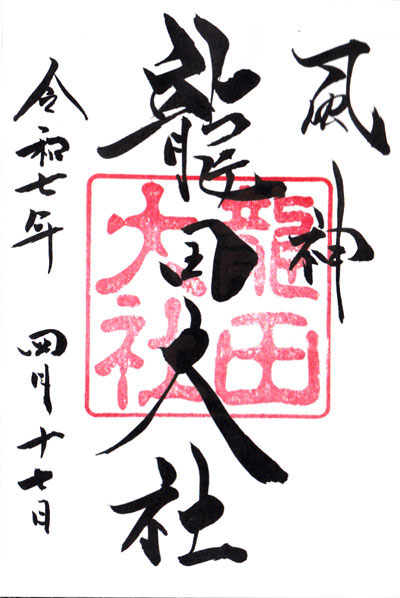 風神
龍田大社
龍田
大社
令和七年 四月十七日